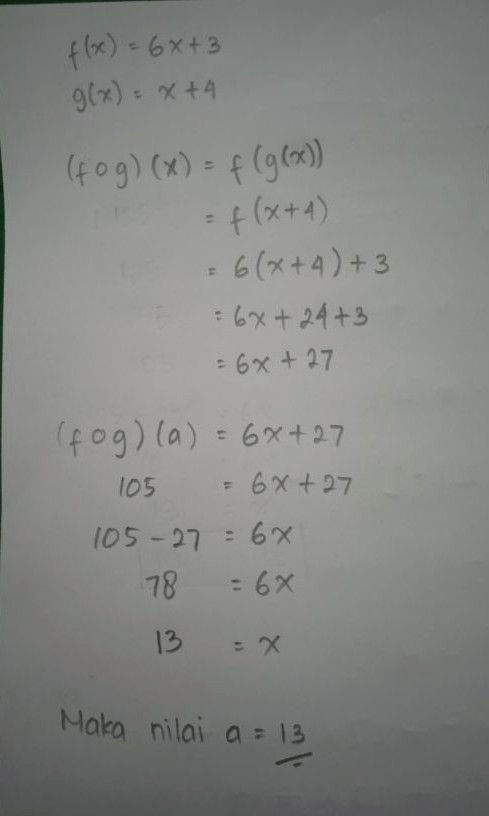 f(x) = 6x+3
g(x) = x+4
(fog)(x) = f(g(x))
= f(x+4)
= 6(x+4)+3
= 6x+24+3
= 6x+27
(fog)(a) = 6x+27
105 = 6x+27
105-27 = 6x
78 = 6x
13 = x
Maka nilai a = 13